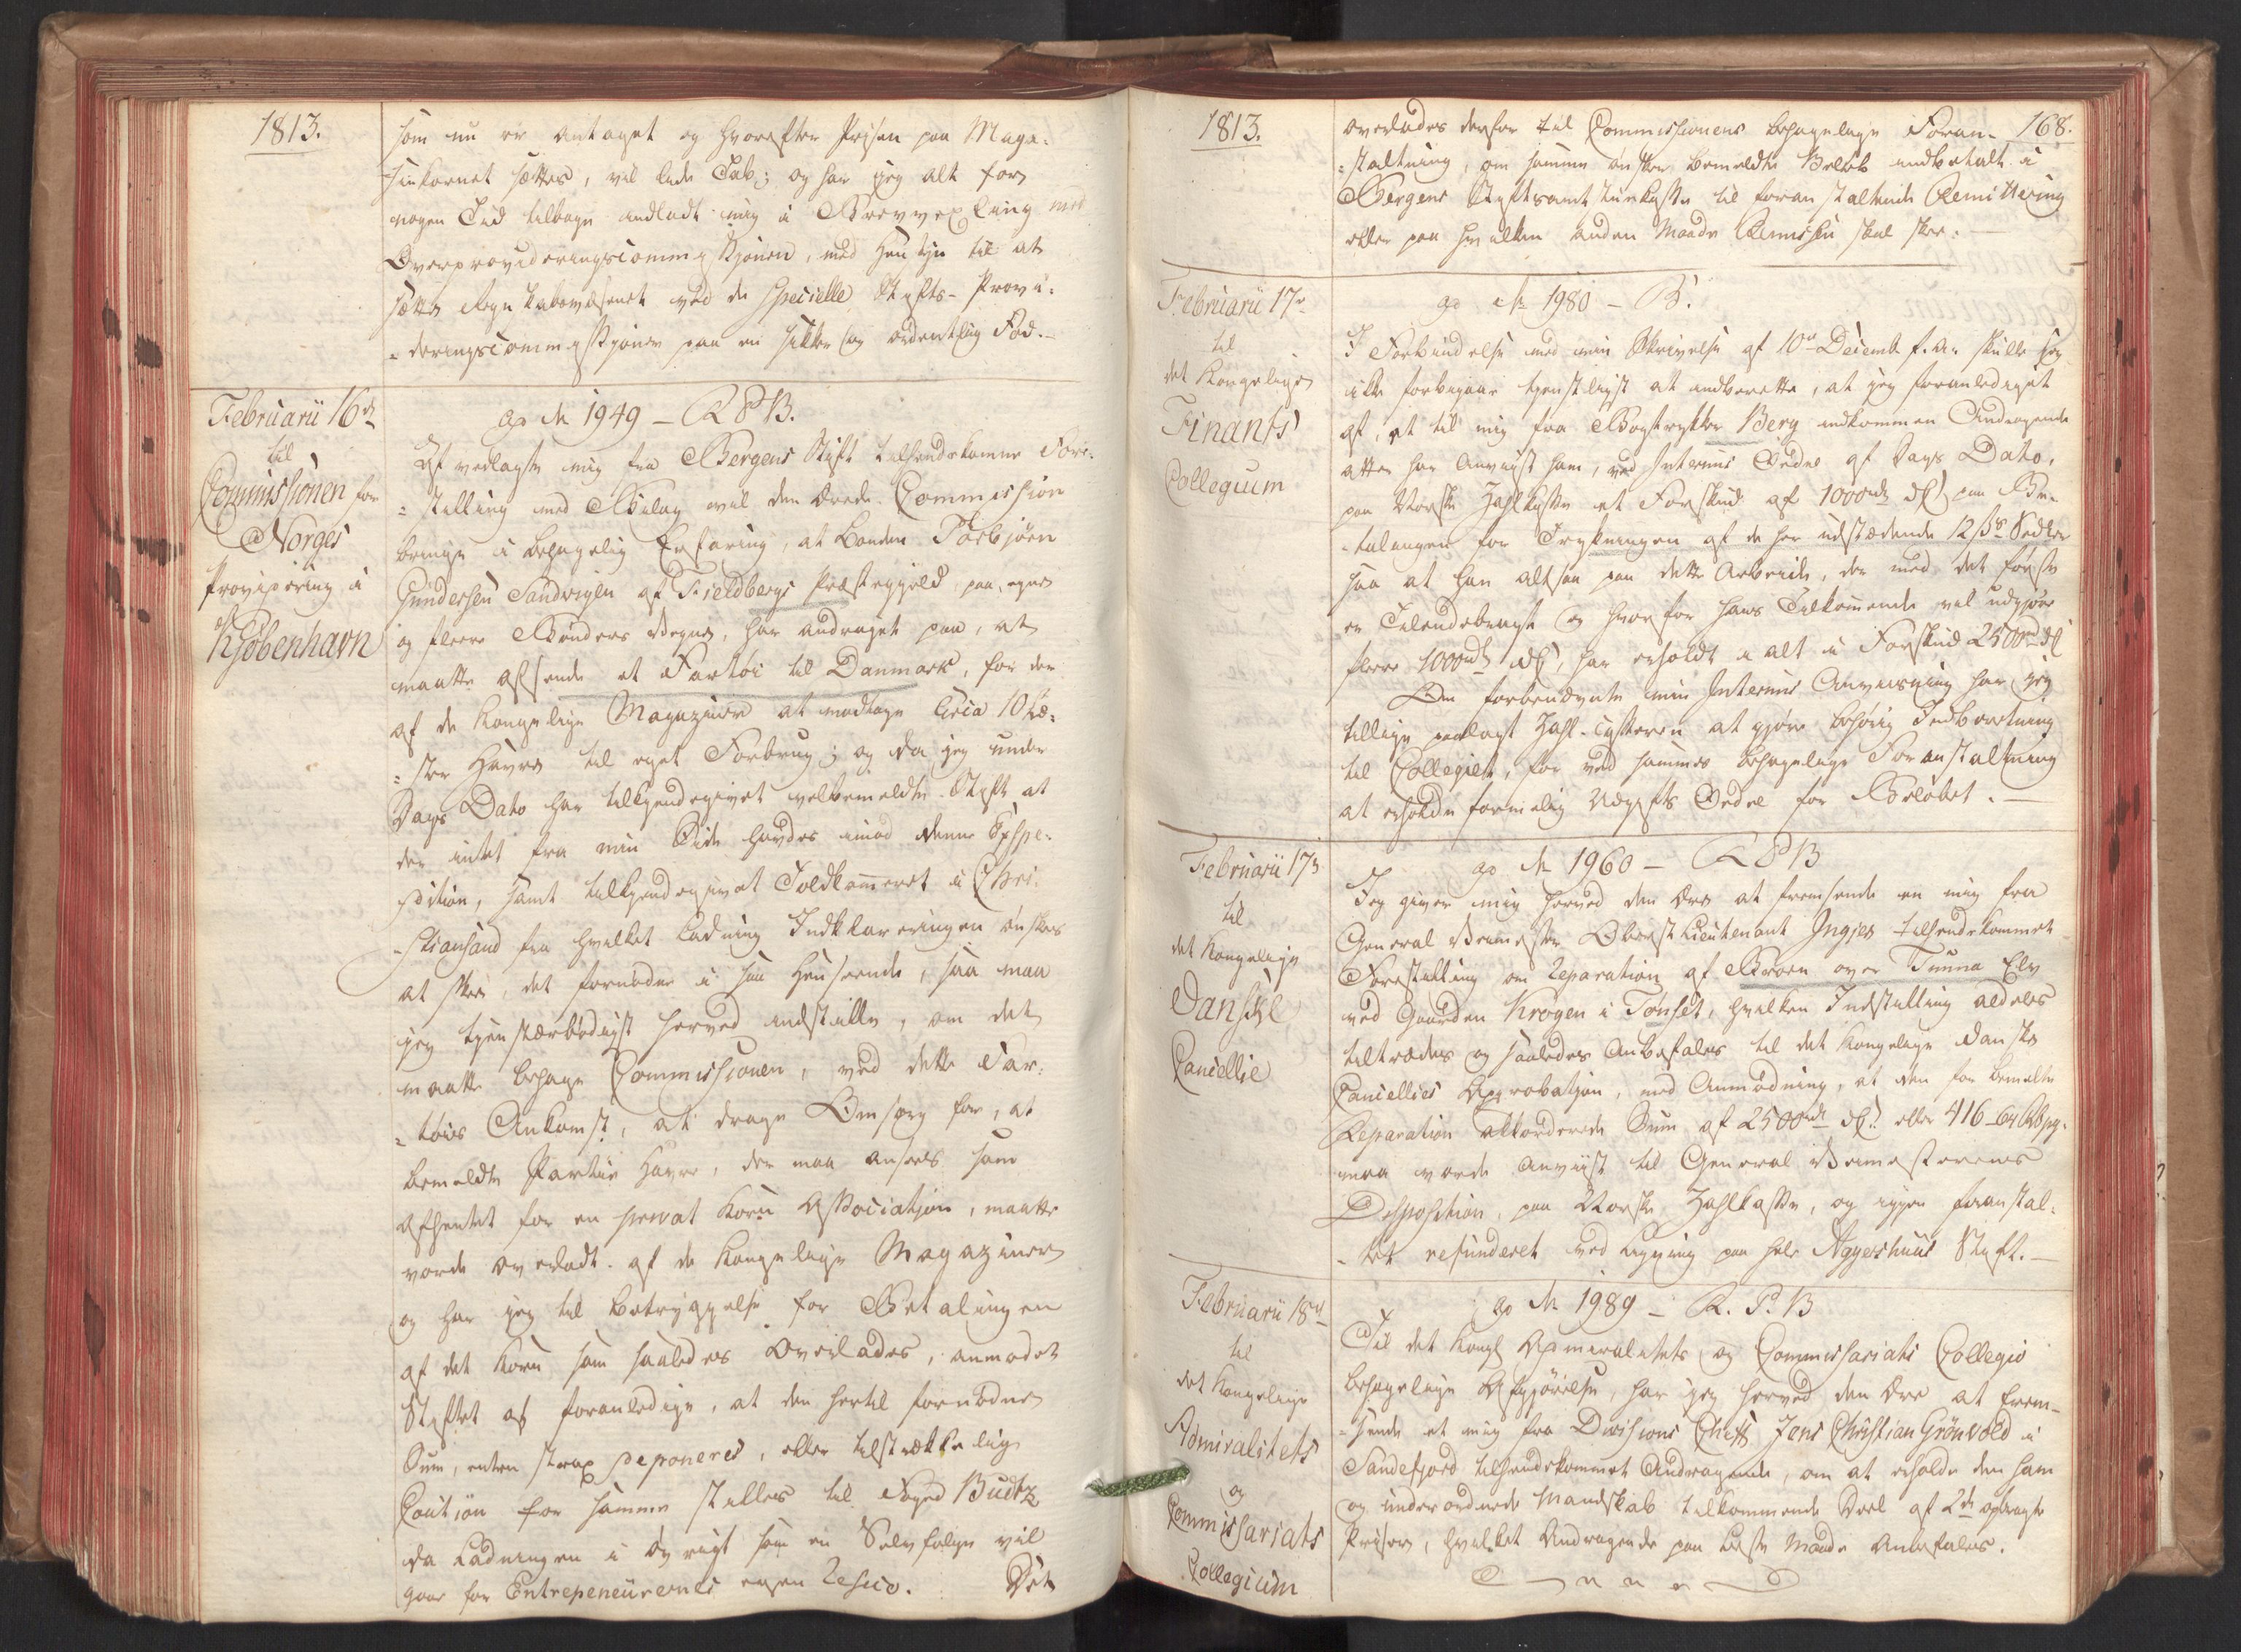 1813.
som nu er antaget og hvorefter Prisen paa Maga-
sinkornet sættes, vil lide Tab; og har jeg alt for
nogen Tid tilbage indladt mig i Brevvexling med
Overprovideringscommisjonen, med Hensyn til at
sætte Regnskabsvæsenet ved de specielle Stifts-Provi-
-deringscommissjoner paa en sikker og ordentlig Fod.-
Februarii 16de
til
Commissionen for
Norges
Providering i
Kjøbenhavn
No 1949 - R P B.
Af vedlagte mig fra Bergens Stift tilsendekomne Fore-
=stilling med Bilag vil den Ærede Commission
bringe i behagelig Erfaring, at Bonden Torbjørn
Gundersen Sandvigen af Fieldbergs Præstegjeld paa egne
og flere Bønders Vegne, har andraget paa, at
maatte afsende et Fartøi til Danmark, for der
af de Kongelige Magaziner at modtage circa 10 Læ-
=ster Havre til eget Forbrug; og da jeg under
Dags Dato har tilkjendegivet velbemeldte Stift at
der intet fra min Side havdes imod denne Expe-
dition, samt tilkjendegivet Toldkammeret i Chri-
-stiansand fra hvilket Ladning Indklareringen ønskes
at skee, det fornødne i saa Henseende, saa maa
jeg tjenstærbødigst herved indstille, om det
maatte behage Commissionen, ved dette Far-
=tøis Ankomst, at drage Omsorg for, at
bemeldte Partie Havre, der maa ansees som
afhentet for en privat Korn Association, maatte
vorde overladt af de Kongelige Magaziner
og har jeg til Betryggelse for Betalingen
af det Korn som saaledes overlades, anmodet
Stiftet at foranledige, at den hertil fornødne
Sum, enten strax deponeres, eller tilstrækkelig
Caution for samme stilles til Foged Budtz
da Ladningen i øvrigt som en Selvfølge vil
gaae for Entrepeneurernes egen Resico.
Det
1813.
168.
overlades derfor til Commissionens behagelige Foran-
=staltning, om samme ønsker bemeldte Beløb indbetalt i
Bergens Stiftsamtstuekasse til foranstaltende Remittering
eller paa hvilken anden Maade Remissen skal skee.-
Februarii 17de
til
det Kongelige
Finants
Collegium
No 1980 - B.
I Forbindelse med min Skrivelse af 10de Decemb. f. A. skulle jeg
ikke forbigaae tjenstligst at indberette, at jeg foranlediget
af, et til mig fra Bogtrykker Berg indkommen Andragende
atter har anviist ham, ved Interims Ordre af Dags Dato,
paa Norske Zahlkasse et Forskud af 1000 rdl. paa Be-
-talingen for Trykningen af de her udstædende 12 ß Sedler
saa at han altsaa paa dette Arbeide, der med det første
er Tilendebragt og hvorfor hans Tilkommende vil udgjøre
flere 1000 rdl, har erholdt i alt i Forskud 2500 rdl
Om forbenævnte min Interims Anviisning har jeg
tillige paalagt Zahl-Casseren at gjøre behørig Indberetning
til Collegiet, for ved sammes behagelige Foranstaltning
at erholde formelig Udgifts Ordre for Beløbet. -
Februarii 17de
til
det Kongelige
Danske
Cancellie
No 1960 - R P B
Jeg giver mig herved den Ære at fremsende en mig fra
General Veimester Oberst Lieutenant Ingier tilsendekommet
Forestilling om Reparation af Broen over Tunna Elv
ved Gaarden Krogen i Tønset, hvilken Indstilling aldeles
tiltrædes og saaledes anbefales til det Kongelige Danske
Cancellies Approbatjon, med Anmodning, at den for bemeldte
Reparation akkorderede Sum af 2500 rdl. eller 416 Rbdlr.
maa vorde anviist til General Veimesterens
Disposition, paa Norske Zahlkasse, og igjen foranstal-
-tet refunderet ved Ligning paa hele Aggershuus Stift.-
Februarii 18de
til
det Kongelige
Admiralitets
og
Commissariats
Collegium
No 1989 - R. P. B
Til det Kongl Admiralitets og Commissariats Collegio
behagelige Afgjørelse, har jeg herved den Ære at frem-
=sende et mig fra Divisions Cheff Jens Christian Grönvold i
Sandefjord tilsendekommet Andragende, om at erholde den ham
og underordnede Mandskab tilkommende Deel af 2de opbragte
Priser, hvilket Andragende paa beste Maade anbefales.